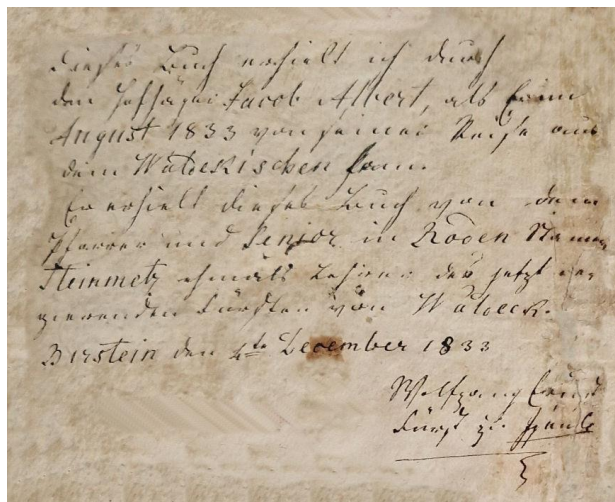 Dieses Buch erhielt ich durch
den Hofjäger Jacob Albert, als Er im
August 1833 von seiner Reise aus
dem Waldekischen kam.
Er erhielt dieses Buch von dem
Pfarrer und Senior in Roden Namens
Steinmetz ehmals Lehrer des jetzt re-
gierenden Fürsten von Waldeck.
Birstein den 4te December 1833
Wolfgang Ernst
Fürst zu